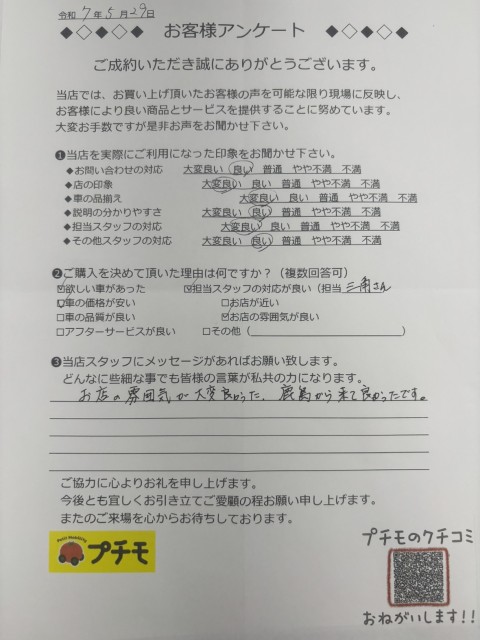 令和 7年5月29日
◆◇◆◇◆ お客様アンケート ◆◇◆◇◆
ご成約いただき誠にありがとうございます。
当店では、お買い上げ頂いたお客様の声を可能な限り現場に反映し、
お客様により良い商品とサービスを提供することに努めています。
大変お手数ですが是非お声をお聞かせ下さい。
❶当店を実際にご利用になった印象をお聞かせ下さい。
◆お問い合わせの対応 大変良い 良い 普通 やや不満 不満
◆店の印象 大変良い 良い 普通 やや不満 不満
◆車の品揃え 大変良い 良い 普通 やや不満 不満
◆説明の分かりやすさ 大変良い 良い 普通 やや不満 不満
◆担当スタッフの対応 大変良い 良い 普通 やや不満 不満
◆その他スタッフの対応 大変良い 良い 普通 やや不満 不満
❷ご購入を決めて頂いた理由は何ですか?(複数回答可)
☑欲しい車があった ☑担当スタッフの対応が良い(担当 三角さん
☑車の価格が安い □お店が近い
□車の品質が良い ☑お店の雰囲気が良い
□アフターサービスが良い □その他( )
❸当店スタッフにメッセージがあればお願い致します。
どんなに些細な事でも皆様の言葉が私共の力になります。
お店の雰囲気が大変良かった、鹿島から来て良かったです。
ご協力に心よりお礼を申し上げます。
今後とも宜しくお引き立てご愛顧の程お願い申し上げます。
またのご来場を心からお待ちしております。
プチモ
プチモのクチコミ
おねがいします!!